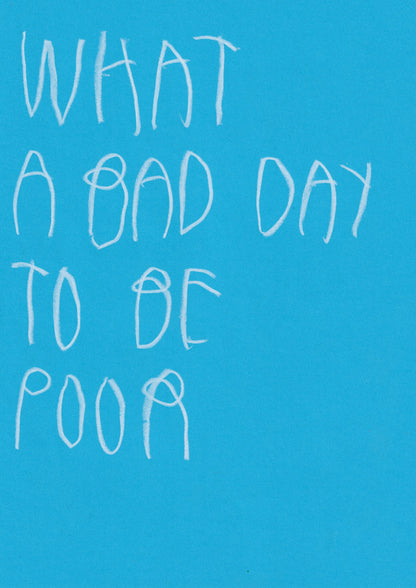 WHAT
A BAD DAY
TO BE
POOR